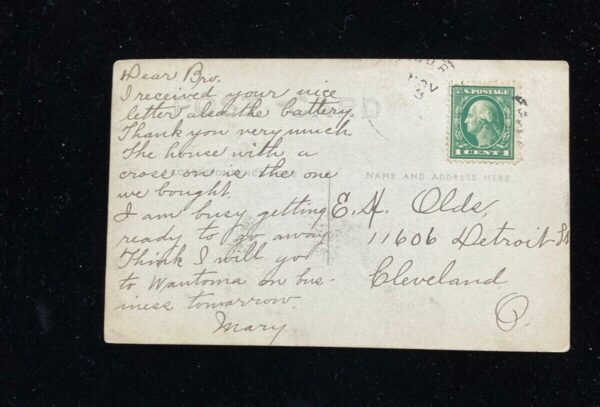 Dear Bro.
I received your nice
letter also the battery.
Thank you very much
The house with a
cross on is the one
we bought.
I am busy getting
ready to go away
Think I will go
to Wautoma on bus-
iness tomorrow
Mary
POST CARD
NOV
U.S. POSTAGE
1 CENT 1
NAME AND ADDRESS HERE
E. H. Olds,
11606 Detroit St
Cleveland
O.